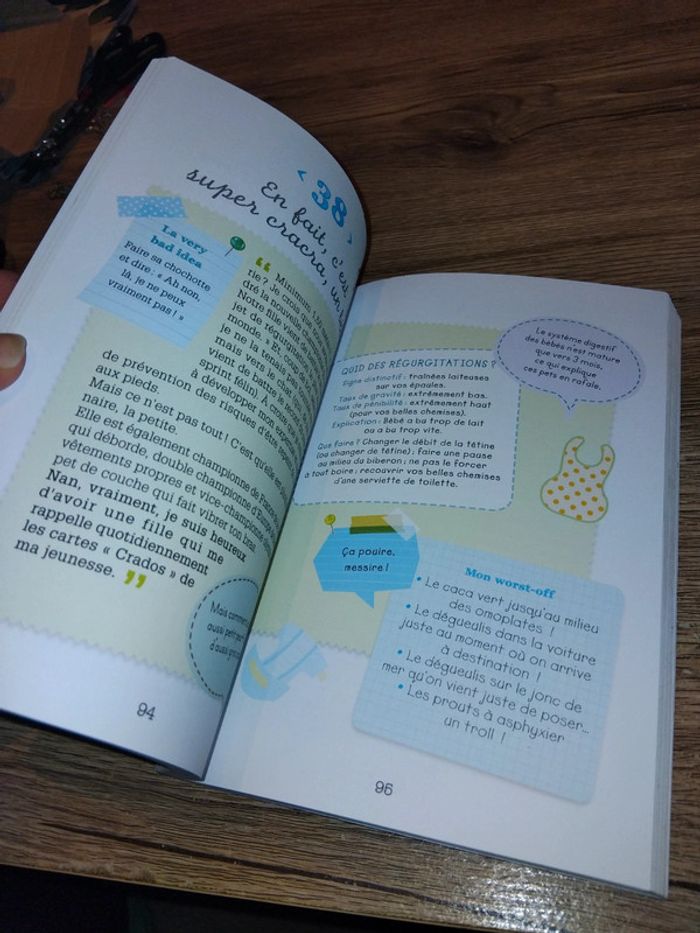 ‹ 38 ›
En fait, c'est
super cracra, un
La very
bad idea
Faire sa chochotte
et dire : « Ah non,
là, je ne peux
vraiment pas ! »
“ Minimum 1,50
rie ? Je crois que
dré la nouvelle
Notre fille vient
jet de régurgita
monde. » En coup de
je ne la tenais pas
mais vers le
vient de battre le record
sprint félin). À croire
à développer mon
de prévention des risques d'être
aux pieds.
Mais ce n'est pas tout ! C'est qu'elle est
naire, la petite.
Elle est également championne de France
qui déborde, double championne d'Europe
vêtements propres et vice-championne
pet de couche qui fait vibrer ton brail.
Nan, vraiment, je suis heureux
d'avoir une fille qui me
rappelle quotidiennement
les cartes « Crados » de
ma jeunesse. ”
Mais comment
aussi petit
d'aussi
94
QUID DES RÉGURGITATIONS ?
Signe distinctif : traînées laiteuses
sur vos épaules.
Taux de gravité : extrêmement bas.
Taux de pénibilité : extrêmement haut
(pour vos belles chemises).
Explication : Bébé a bu trop de lait
ou a bu trop vite.
Que faire ? Changer le débit de la tétine
(ou changer de tétine) ; faire une pause
au milieu du biberon ; ne pas le forcer
à tout boire ; recouvrir vos belles chemises
d'une serviette de toilette.
Le système digestif
des bébés n'est mature
que vers 3 mois,
ce qui explique
ces pets en rafale.
Ça pouire,
messire !
Mon worst-off
• Le caca vert jusqu'au milieu
des omoplates !
• Le dégueulis dans la voiture
juste au moment où on arrive
à destination !
• Le dégueulis sur le jonc de
mer qu'on vient juste de poser...
• Les prouts à asphyxier
un troll !
95